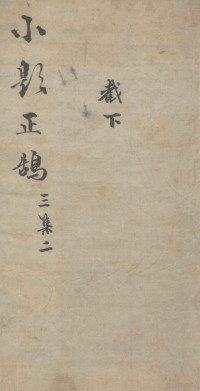 小題正鵠三集二
截下